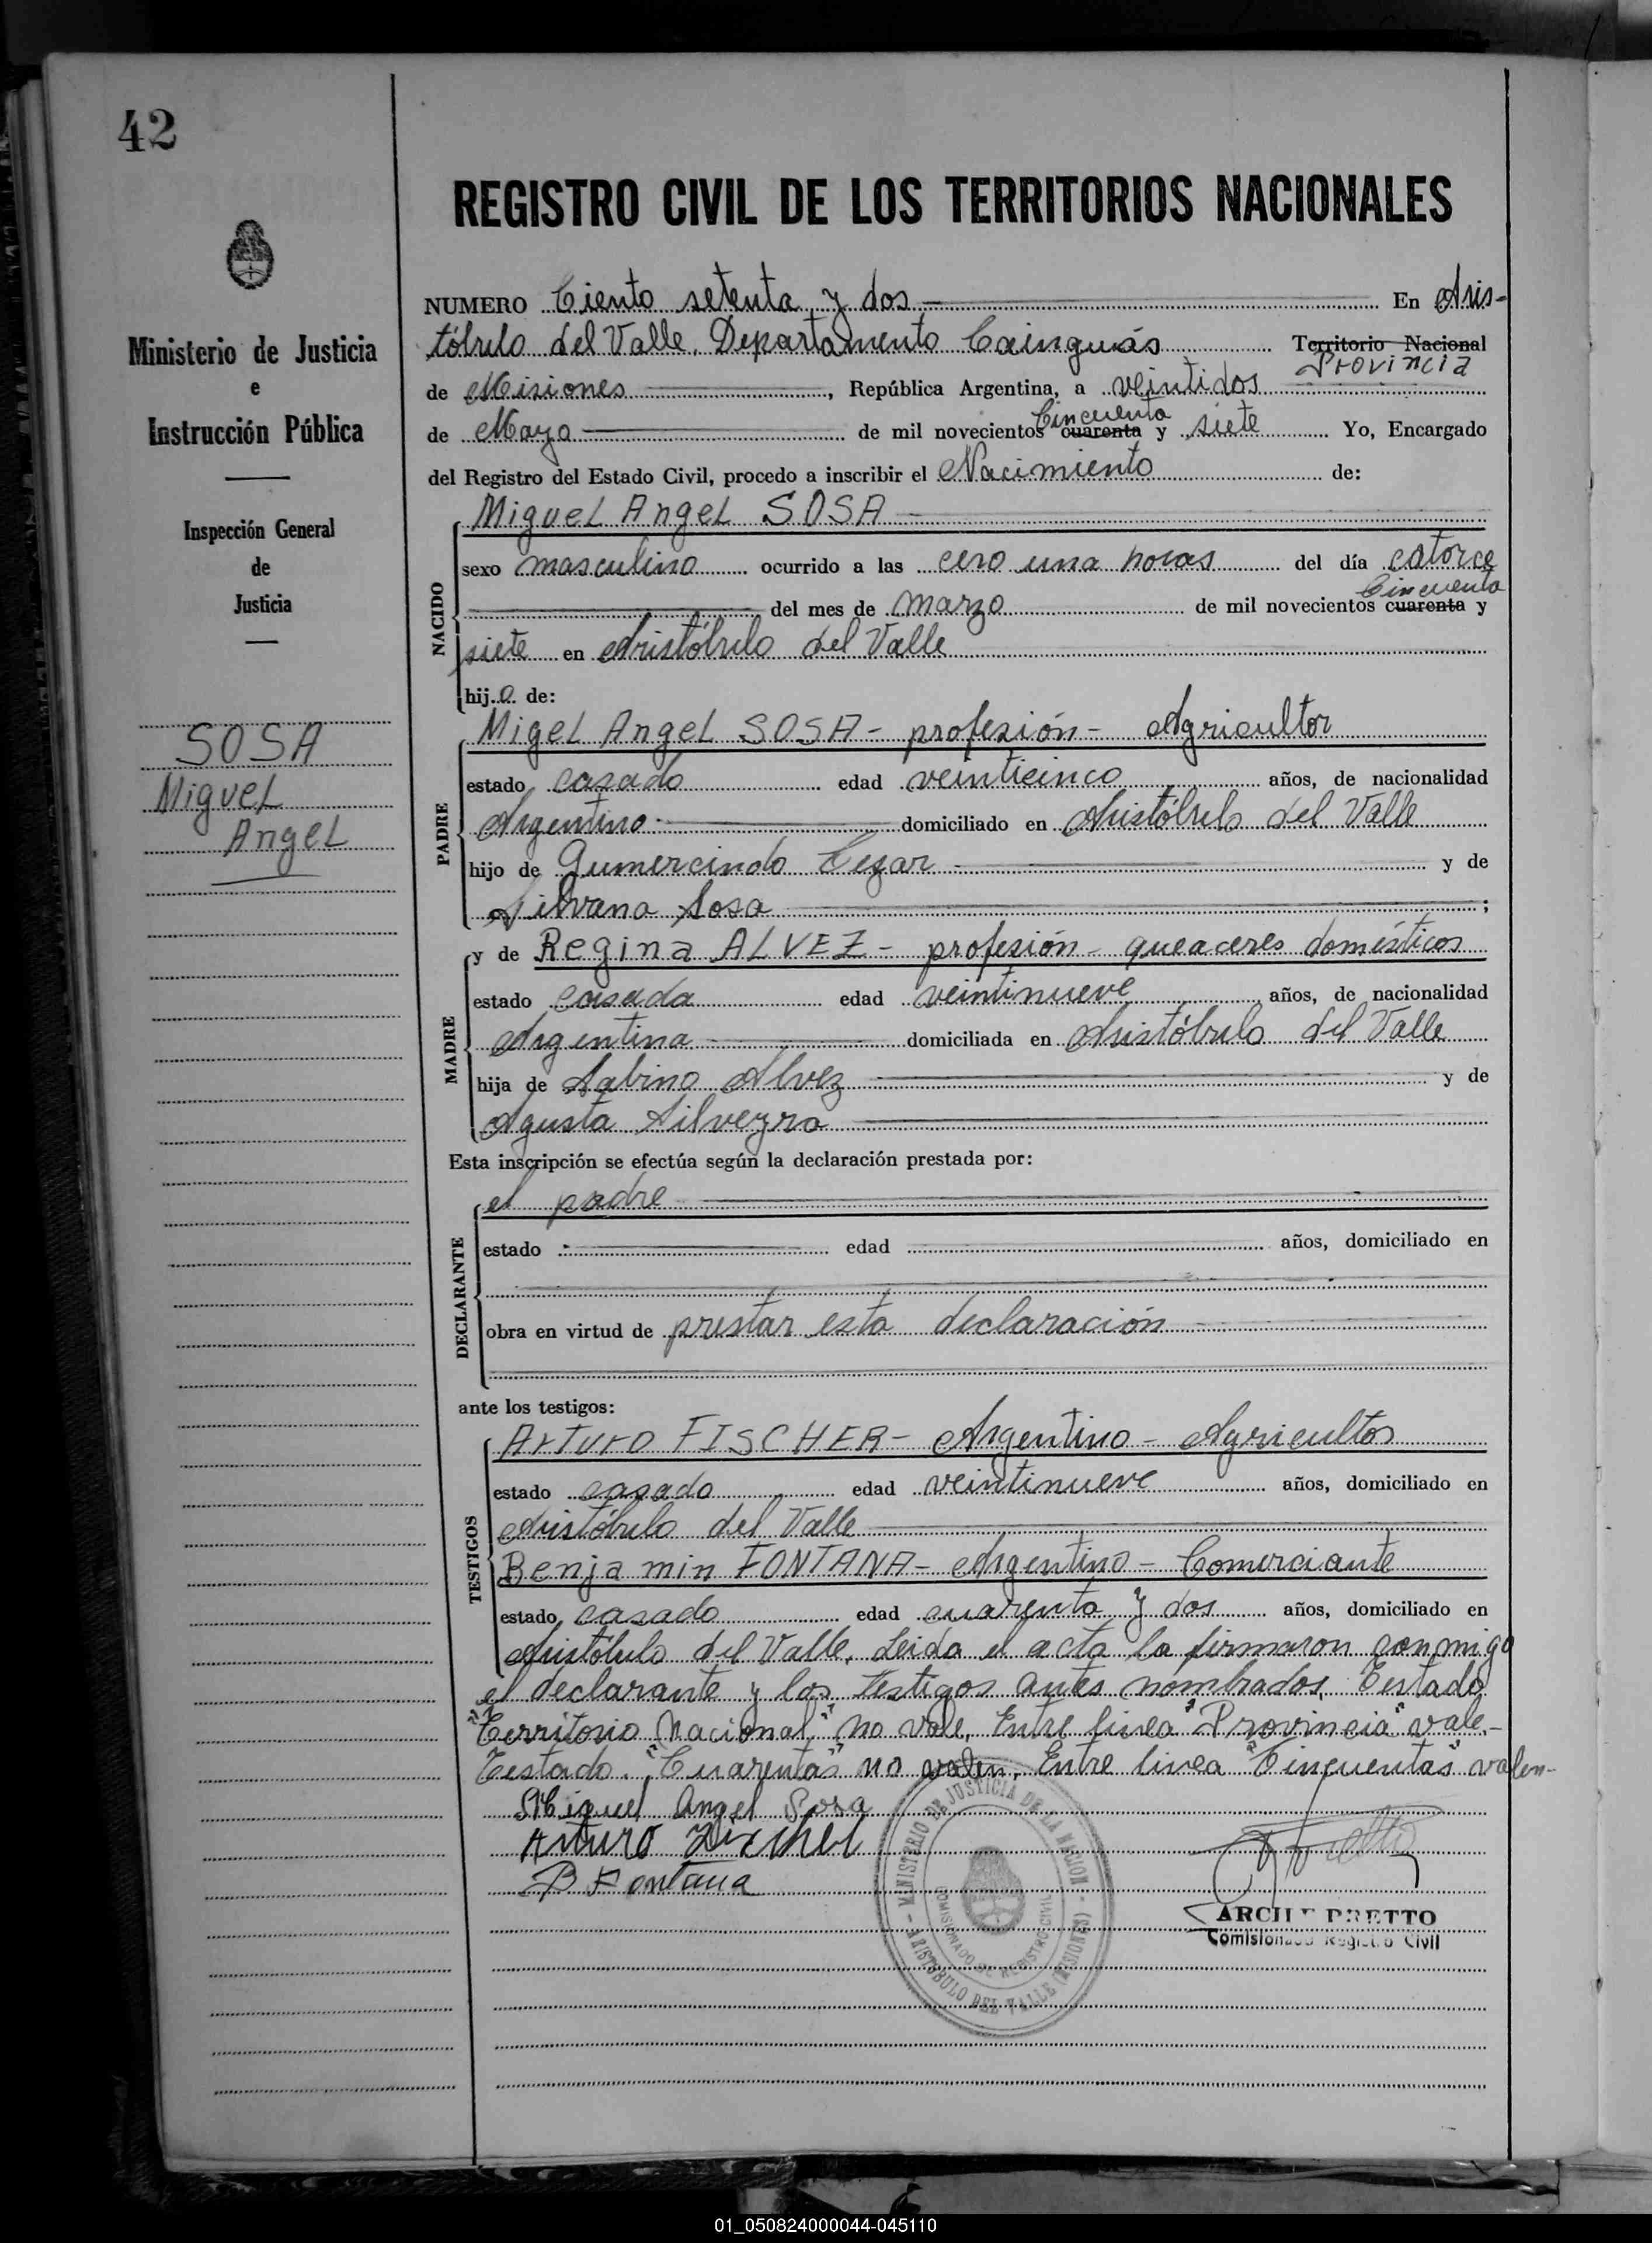 42
Ministerio de Justicia
e
Instrucción Pública
Inspección General
de
Justicia
SOSA
Miguel
Angel
REGISTRO CIVIL DE LOS TERRITORIOS NACIONALES
NUMERO Ciento setenta y dos En Aris-
tóbulo del Valle. Departamento Cainguás Territorio Nacional
Provincia
de Misiones, República Argentina, a veintidos
Cincuenta
de Mayo de mil novecientos cuarenta y siete Yo, Encargado
del Registro del Estado Civil, procedo a inscribir el Nacimiento de:
Miguel Angel SOSA
NACIDO
sexo masculino ocurrido a las cero una horas del día catorce
Cincuenta
del mes de marzo de mil novecientos cuarenta y
siete en Aristóbulo del Valle
hijo de:
Migel Angel SOSA - profesión - Agricultor
PADRE
estado casado edad veinticinco años, de nacionalidad
Argentino domiciliado en Aristóbulo del Valle
hijo de Gumercindo Cezar y de
Silvana Sosa;
y de Regina ALVEZ - profesión - queaceres domésticos
MADRE
estado casada edad veintinueve años, de nacionalidad
Argentina domiciliada en Aristóbulo del Valle
hija de Sabino Alvez y de
Agusta Silveyra
Esta inscripción se efectúa según la declaración prestada por:
el padre
DECLARANTE
estado edad años, domiciliado en
obra en virtud de prestar esta declaración
ante los testigos:
Arturo FISCHER - Argentino - Agricultor
TESTIGOS
estado casado edad veintinueve años, domiciliado en
Aristóbulo del Valle
Benjamin FONTANA - Argentino - Comerciante
estado casado edad cuarenta y dos años, domiciliado en
Aristóbulo del Valle. Leida el acta la firmaron conmigo
el declarante y los testigos antes nombrados. Testado
"Territorio Nacional" no vale. Entre linea "Provincia" vale.-
Testado. "Cuarentas" no valen. Entre linea "Cincuentas" valen-
Miguel Angel Sosa
Arturo Fischer
B Fontana
MINISTERIO DE JUSTICIA DE LA NACION
COMISIONADO DE REGISTRO CIVIL
ARISTOBULO DEL VALLE (MISIONES)
PRETTO
Comisionado Registro Civil
01_050824000044-045110